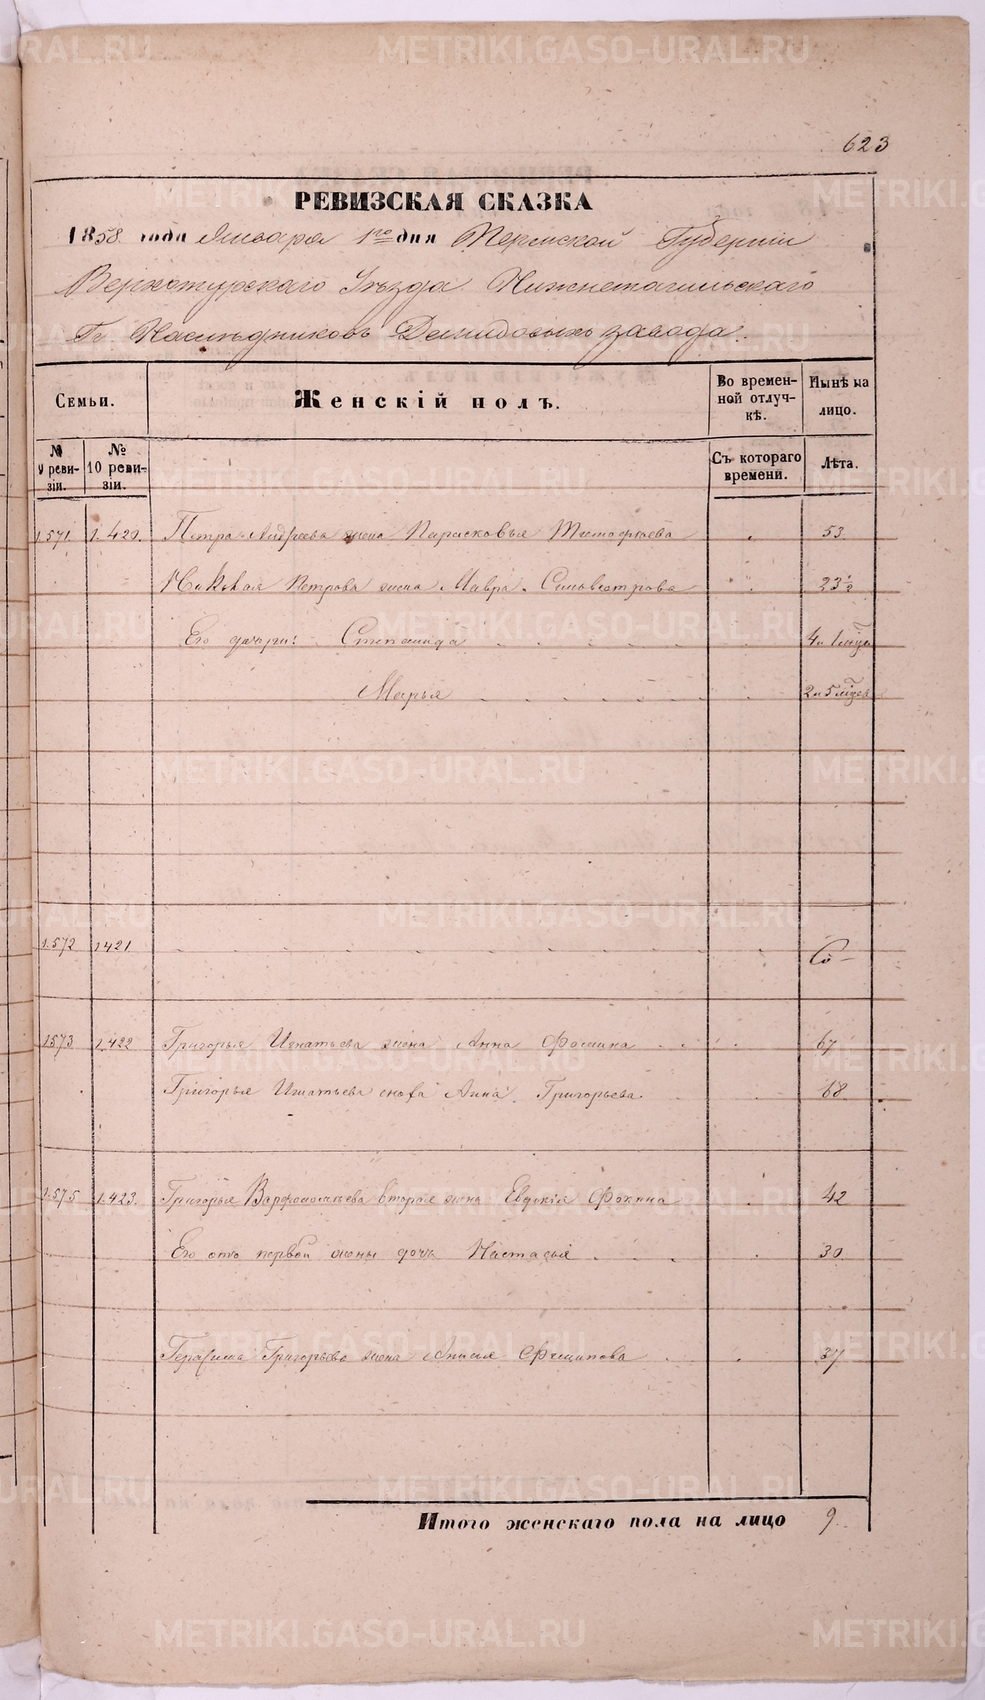 623
РЕВИЗСКАЯ СКАЗКА
1858 года Января 1го дня Пермской Губерніи
Верхотурскаго Уѣзда Нижнетагильскаго
Гг. Наслѣдниковъ Демидовыхъ завода.
Семьи. Женскій полъ. Во времен-ной отлуч-кѣ. Нынѣ на лицо.
№ 9 реви-зіи. № 10 реви-зіи. Съ котораго времени. Лѣта.
1.571. 1.420. Петра Андреева жена Парасковья Тимофѣева 53.
Петрова жена Мавра Сильвестрова 23½
Его дочери: Степанида 4 и 1 мѣсц
Марья 2 и 5 мѣсцев
1.572 1421 Со
1573 1.422 Григорья Игнатьева жена Анна Фомина 67
Григорья Игнатьева сноха Анна Григорьева. 68
1.575 1.423. Григорья Варфоломѣева вторая жена Евдокія Фокина 42
Его отъ первой жены дочь Настасья 30
Герасима Григорьева жена Анисья 37
Итого женскаго пола на лицо 9.
METRIKI.GASO-URAL.RU